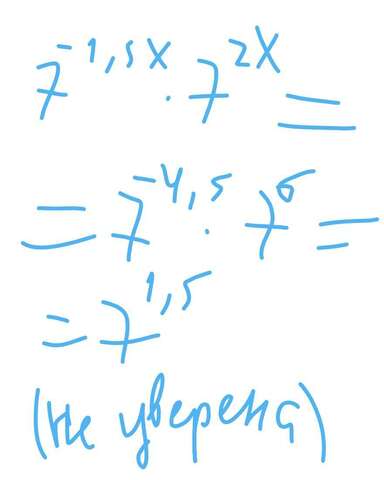 7^{-1,5x} · 7^{2x} =
= 7^{-4,5} · 7^{6} =
= 7^{1,5}
(не уверена)